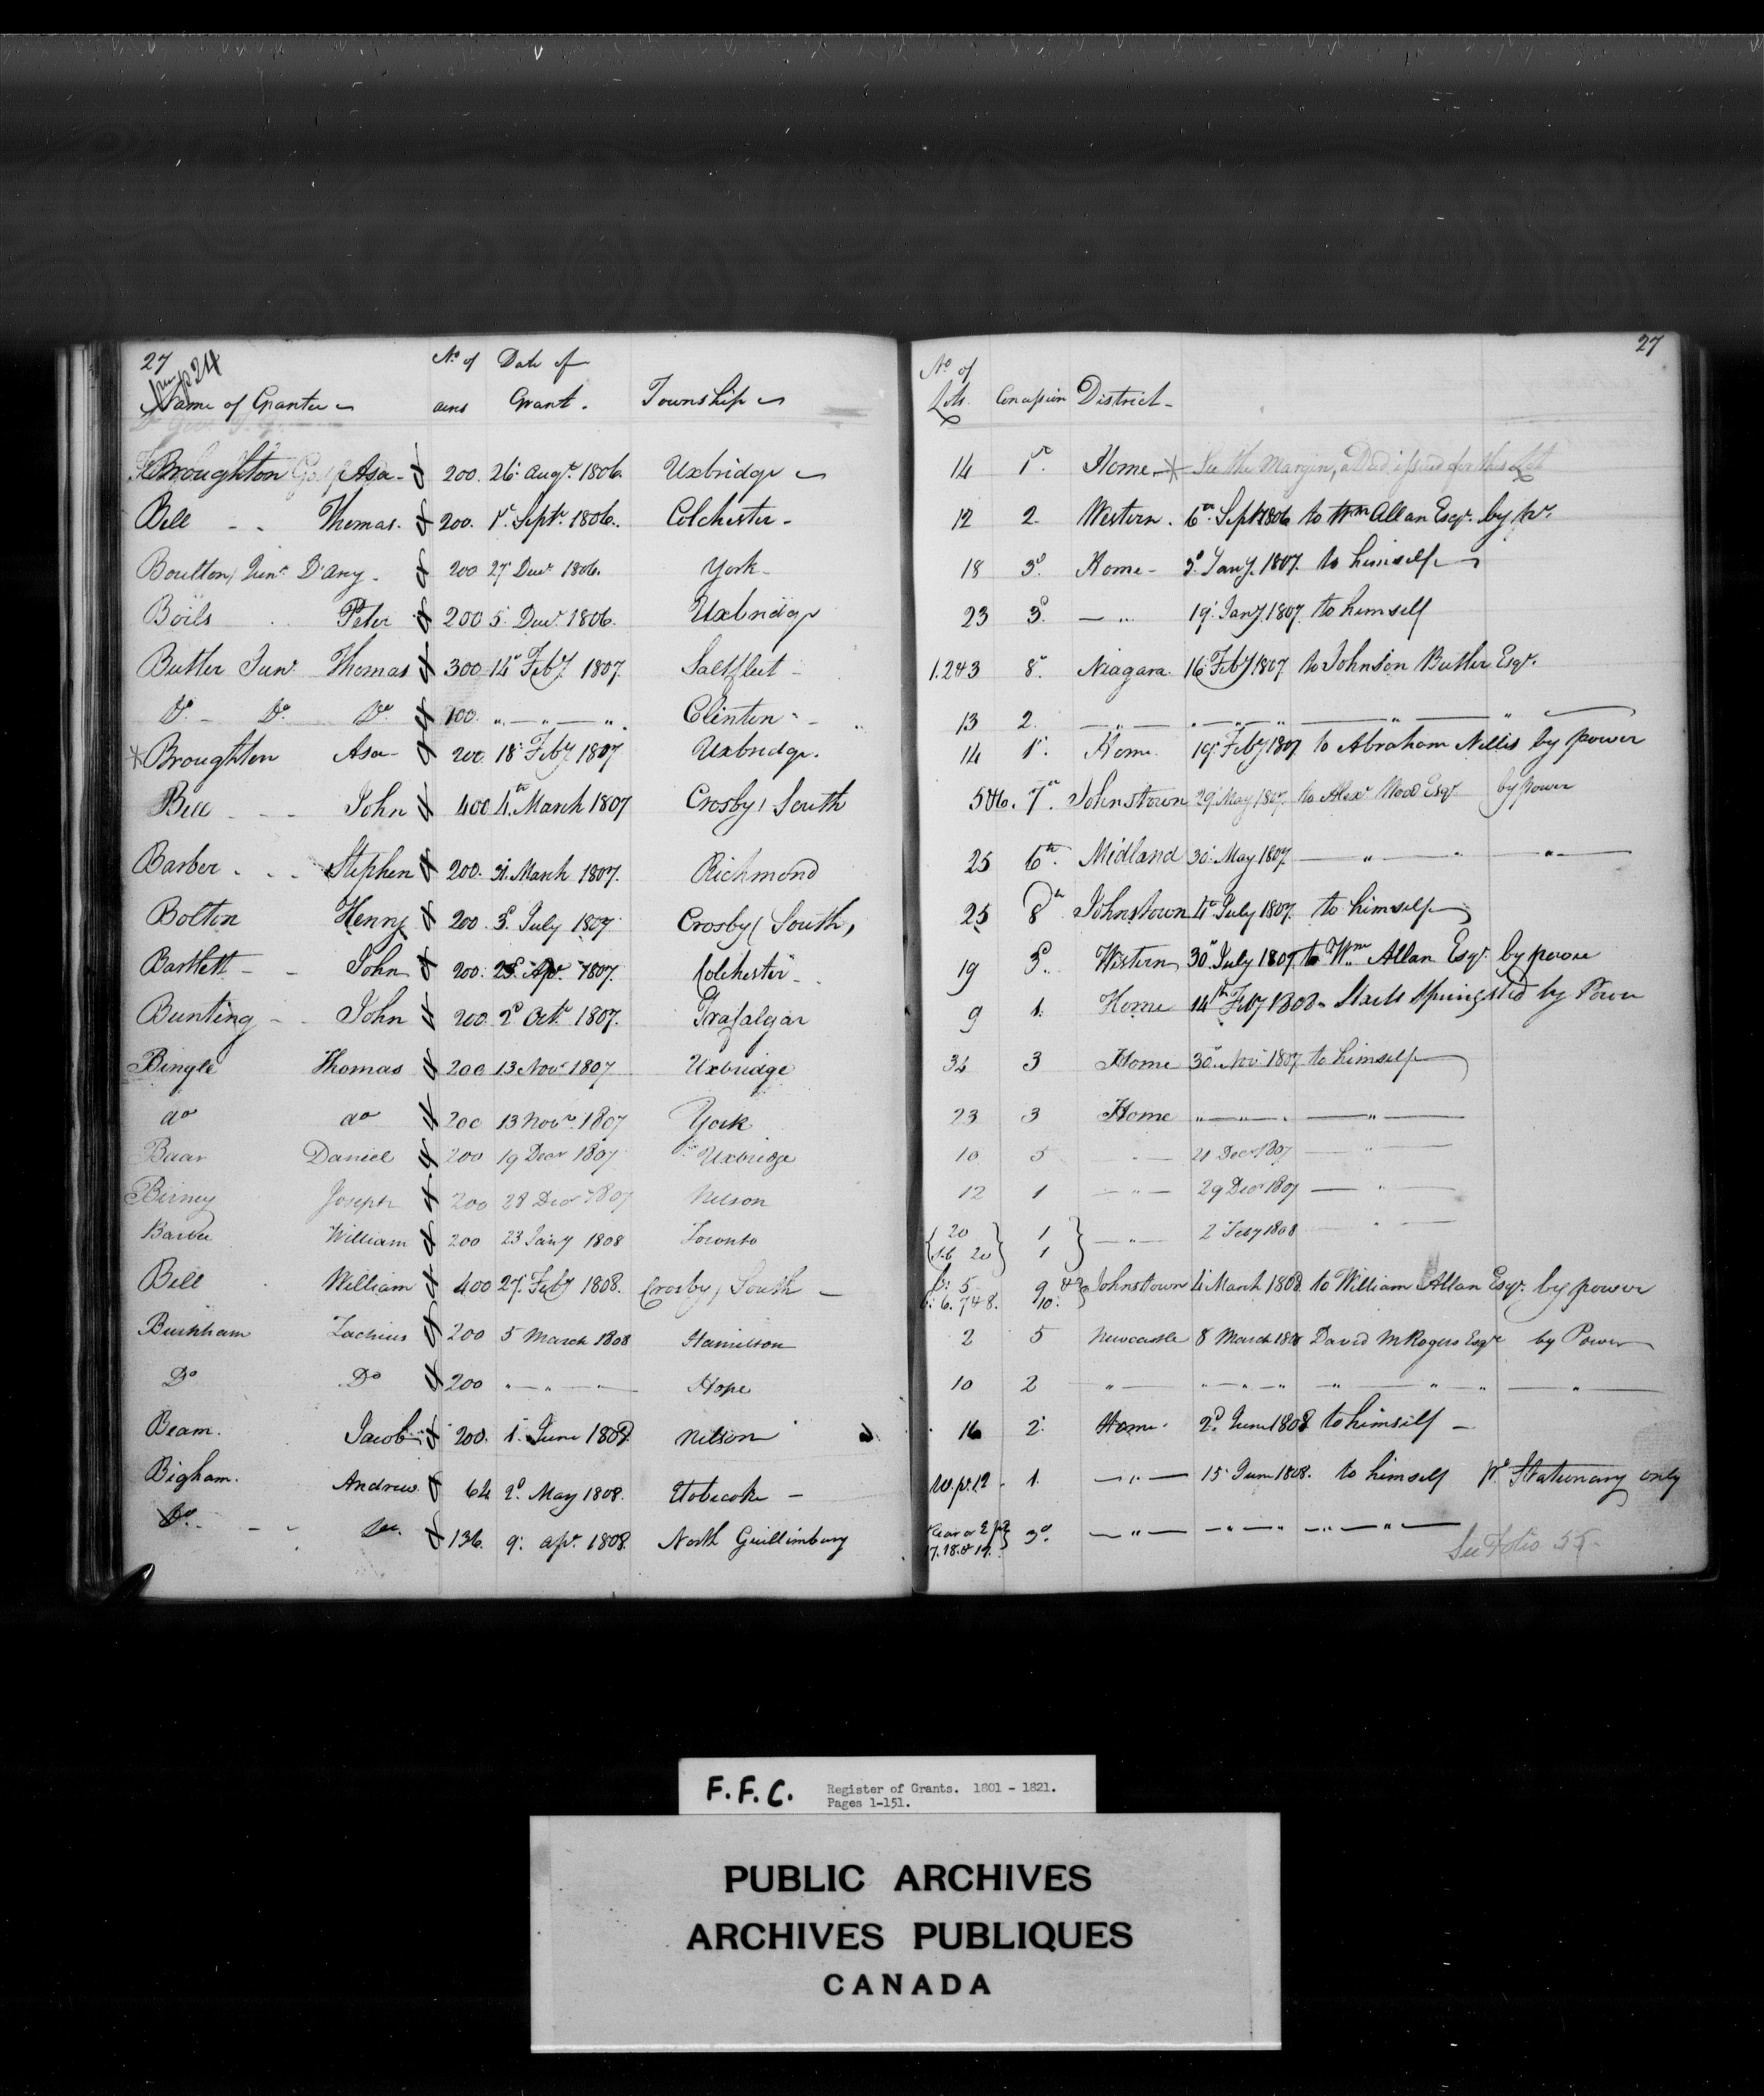 27
p 24
Name of Grantee
No. of acres
Date of Grant.
Township
No. of Lots.
Concession
District
27
Broughton Asa 200. 26. Augt. 1806. Uxbridge 14 1st. Home See the Margin, a Deed issued for this Lot
Bell Thomas. 200. 1st. Septr. 1806. Colchester 12 2. Western. 6th. Septr 1806 to Wm Allan Esqr. by pr.
Boulton, Junr. D'Arcy 200 27 Decr 1806. York 18 3d. Home 3d. Jany. 1807. to himself
Boils Peter 200 5. Decr. 1806. Uxbridge 23 3d. " 19. Jany. 1807. to himself
Butler Junr. Thomas 300 14th Feby. 1807. Saltfleet 1.2 & 3 8th. Niagara. 16 Feby 1807 to Johnson Butler Esqr.
Do. Do. Do. 100. " " " Clinton 13 2. " " " " " "
* Broughton Asa 200. 18. Feby 1807 Uxbridge. 14 1st. Home. 19. Feby 1807 to Abraham Nellis by power
Bell John 400 4th. March 1807 Crosby, South 5 & 6. 7th. Johnstown 29. May 1807. to Alexr Wood Esqr by power
Barber Stephen 200. 31. March 1807. Richmond 25 6th. Midland 30. May 1807 " " "
Bolton Henry 200. 3d. July 1807 Crosby (South, 25 8th Johnstown 4th July 1807. to himself
Bartlett John 200. Apr. 1807. Colchester 19 3d. Western 30th July 1807. to Wm Allan Esqr. by power
Bunting John 200. 2d Octr. 1807. Trafalgar 9 1. Home 14th Feby 1808 Staats Springsted by Power
Bingle Thomas 200 13 Novr 1807 Uxbridge 34 3 Home 30th. Novr 1807 to himself
do do 200 13 Novr. 1807 York 23 3 Home " " "
Baar Daniel 200 19 Decr 1807 Uxbridge 10 5 " 21 Decr 1807 "
Birney Joseph 200 28 Decr 1807 Nelson 12 1 " 29 Decr 1807 "
Barber William 200 23 Jany 1808 Toronto { 20 / S.b 20 } 1 / 1 } " 2 Feby 1808 "
Bell William 400 27. Feby 1808. Crosby, South 5 / 6. 7 & 8. 9 & / 10. } Johnstown 4. March 1808 to William Allan Esqr. by power
Burnham Zacheus 200 5 March 1808 Hamilton 2 5 Newcastle 8 March 1808 David McRogers Esqr by Power
Do Do 200 " " " Hope 10 2 " " " " " " " "
Beam. Jacob 200. 1. June 1808. Nelson 16 2. Home. 2d. June 1808 to himself
Bigham. Andrew. 64 2d. May 1808. Etobicoke W.pt. 12 1. " 15 June 1808. to himself pd Stationary only
Do. Do. 136. 9. Apr. 1808. North Guillimbury Rear or E pt 17. 18. & 19. } 3d. " " " " "
See Folio 55.
F.F.C. Register of Grants. 1801 - 1821.
Pages 1-151.
PUBLIC ARCHIVES
ARCHIVES PUBLIQUES
CANADA